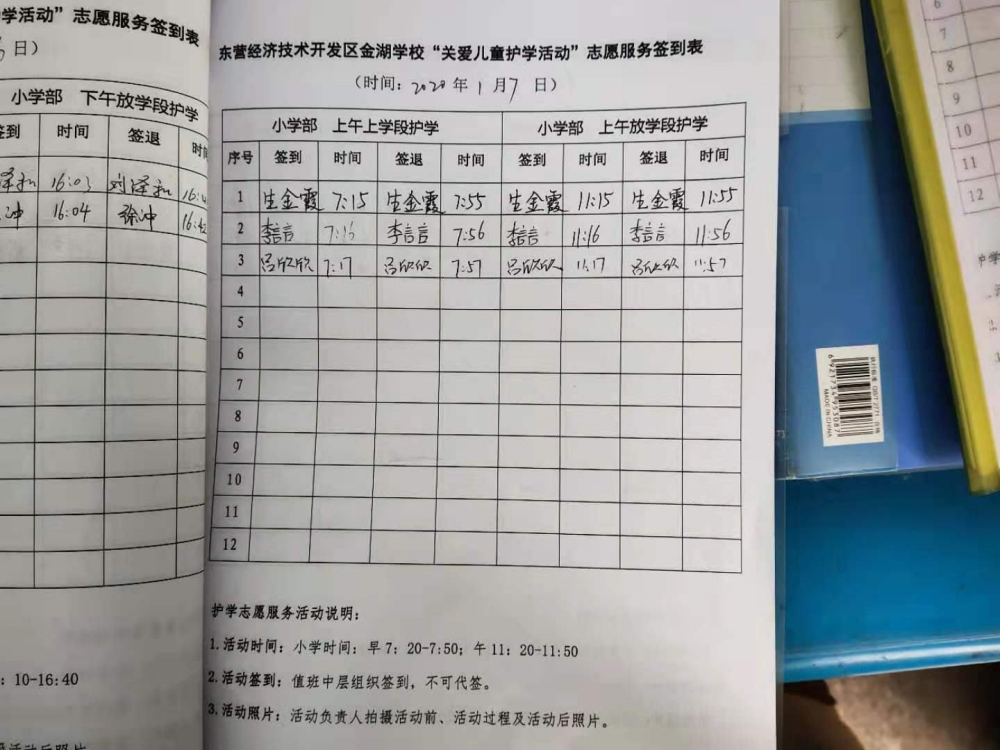 学活动”志愿服务签到表
日）
小学部 下午放学段护学
签到 时间 签退 时间
16:03 刘泽和
冲 16:04 徐冲 16:42
：10-16:40
东营经济技术开发区金湖学校“关爱儿童护学活动”志愿服务签到表
（时间：2020 年 1 月 7 日）
小学部 上午上学段护学 小学部 上午放学段护学
序号 签到 时间 签退 时间 签到 时间 签退 时间
1 生金霞 7:15 生金霞 7:55 生金霞 11:15 生金霞 11:55
2 李言言 7:16 李言言 7:56 李言言 11:16 李言言 11:56
3 吕欣欣 7:17 吕欣欣 7:57 吕欣欣 11:17 吕欣欣 11:57
4
5
6
7
8
9
10
11
12
护学志愿服务活动说明：
1.活动时间：小学时间：早7：20-7:50；午11：20-11:50
2.活动签到：值班中层组织签到，不可代签。
3.活动照片：活动负责人拍摄活动前、活动过程及活动后照片。
6
7
8
9
10
11
12
6921734955087
MADE IN CHINA